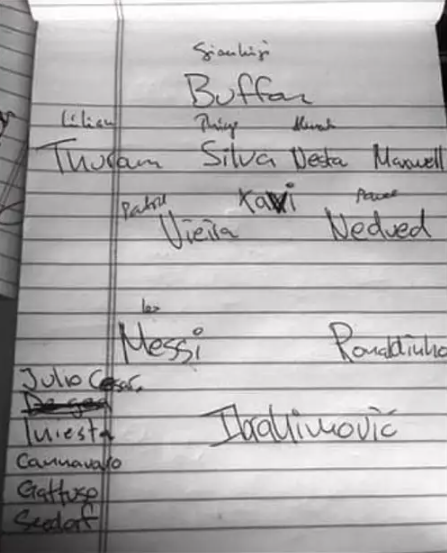 Gianluigi
Buffon
Lilian Thiago
Thuram Silva Nesta Maxwell
Patrick Xavi Pavel
Vieira Nedved
Leo
Messi Ronaldinho
Julio Cesar
Iniesta Ibrahimovic
Cannavaro
Gattuso
Seedorf